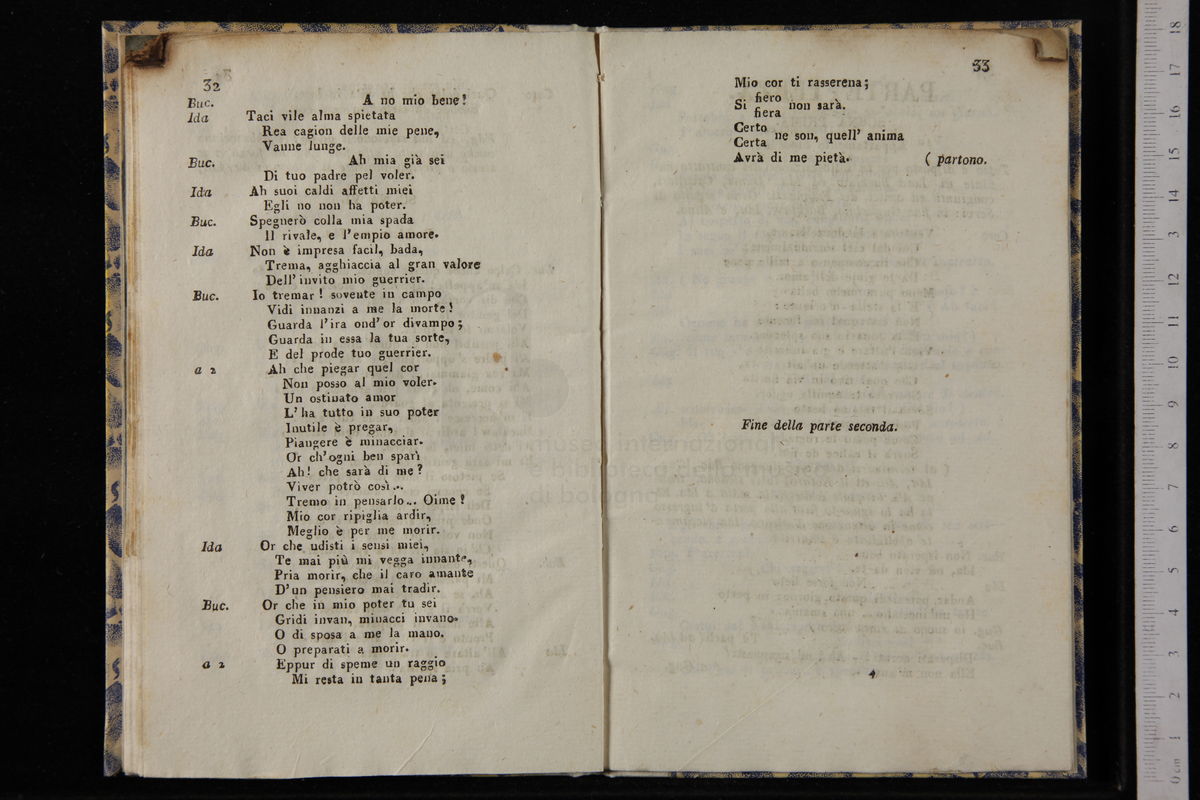 32
Buc. A no mio bene!
Ida Taci vile alma spietata
Rea cagion delle mie pene,
Vanne lunge.
Buc. Ah mia già sei
Di tuo padre pel voler.
Ida Ah suoi caldi affetti miei
Egli no non ha poter.
Buc. Spegnerò colla mia spada
Il rivale, e l'empio amore.
Ida Non è impresa facil, bada,
Trema, agghiaccia al gran valore
Dell' invito mio guerrier.
Buc. Io tremar! sovente in campo
Vidi innanzi a me la morte!
Guarda l'ira ond' or divampo;
Guarda in essa la tua sorte,
E del prode tuo guerrier.
a 2 Ah che piegar quel cor
Non posso al mio voler.
Un ostinato amor
L' ha tutto in suo poter
Inutile è pregar,
Piangere è minacciar.
Or ch' ogni ben sparì
Ah! che sarà di me?
Viver potrò così...
Tremo in pensarlo... Oime!
Mio cor ripiglia ardir,
Meglio è per me morir.
Ida Or che udisti i sensi miei,
Te mai più mi vegga innante,
Pria morir, che il caro amante
D' un pensiero mai tradir.
Buc. Or che in mio poter tu sei
Gridi invan, minacci invano.
O di sposa a me la mano.
O preparati a morir.
a 2 Eppur di speme un raggio
Mi resta in tanta pena;
33
Mio cor ti rasserena;
Si fiero non sarà.
fiera
Certo ne son, quell' anima
Certa
Avrà di me pietà. ( partono.
Fine della parte seconda.
museo internazionale
e biblioteca della musica
di bologna
0 cm 1 2 3 4 5 6 7 8 9 10 11 12 13 14 15 16 17 18